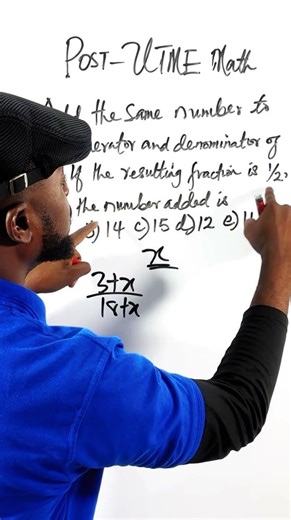 POST-UTME Math
the same number to
and denominator of
If the resulting fraction is 1/2,
the number added is
14 c) 15 d) 12 e)
x
3+x
18+x